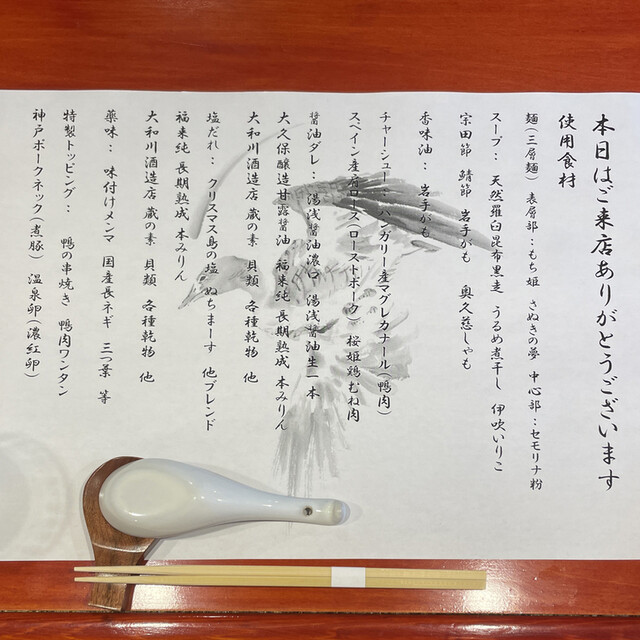 本日はご来店ありがとうございます
使用食材
麺(三層麺) 表層部:もち姫 さぬきの夢 中心部:セモリナ粉
スープ: 天然羅臼昆布黒走 うるめ煮干し 伊吹いりこ
宗田節 鯖節 岩手がも 奥久慈しゃも
香味油: 岩手がも
チャーシュー: ハンガリー産マグレカナール(鴨肉)
スペイン産肩ロース(ローストポーク) 桜姫鶏むね肉
醤油ダレ: 湯浅醤油濃口 湯浅醤油生一本
大久保醸造甘露醤油 福来純 長期熟成 本みりん
大和川酒造店 蔵の素 貝類 各種乾物 他
塩だれ: クリスマス島の塩 ぬちまーす 他ブレンド
福来純 長期熟成 本みりん
大和川酒造店 蔵の素 貝類 各種乾物 他
薬味: 味付けメンマ 国産長ネギ 三つ葉 等
特製トッピング: 鴨の串焼き 鴨肉ワンタン
神戸ポークネック(煮豚) 温泉卵(濃紅卵)